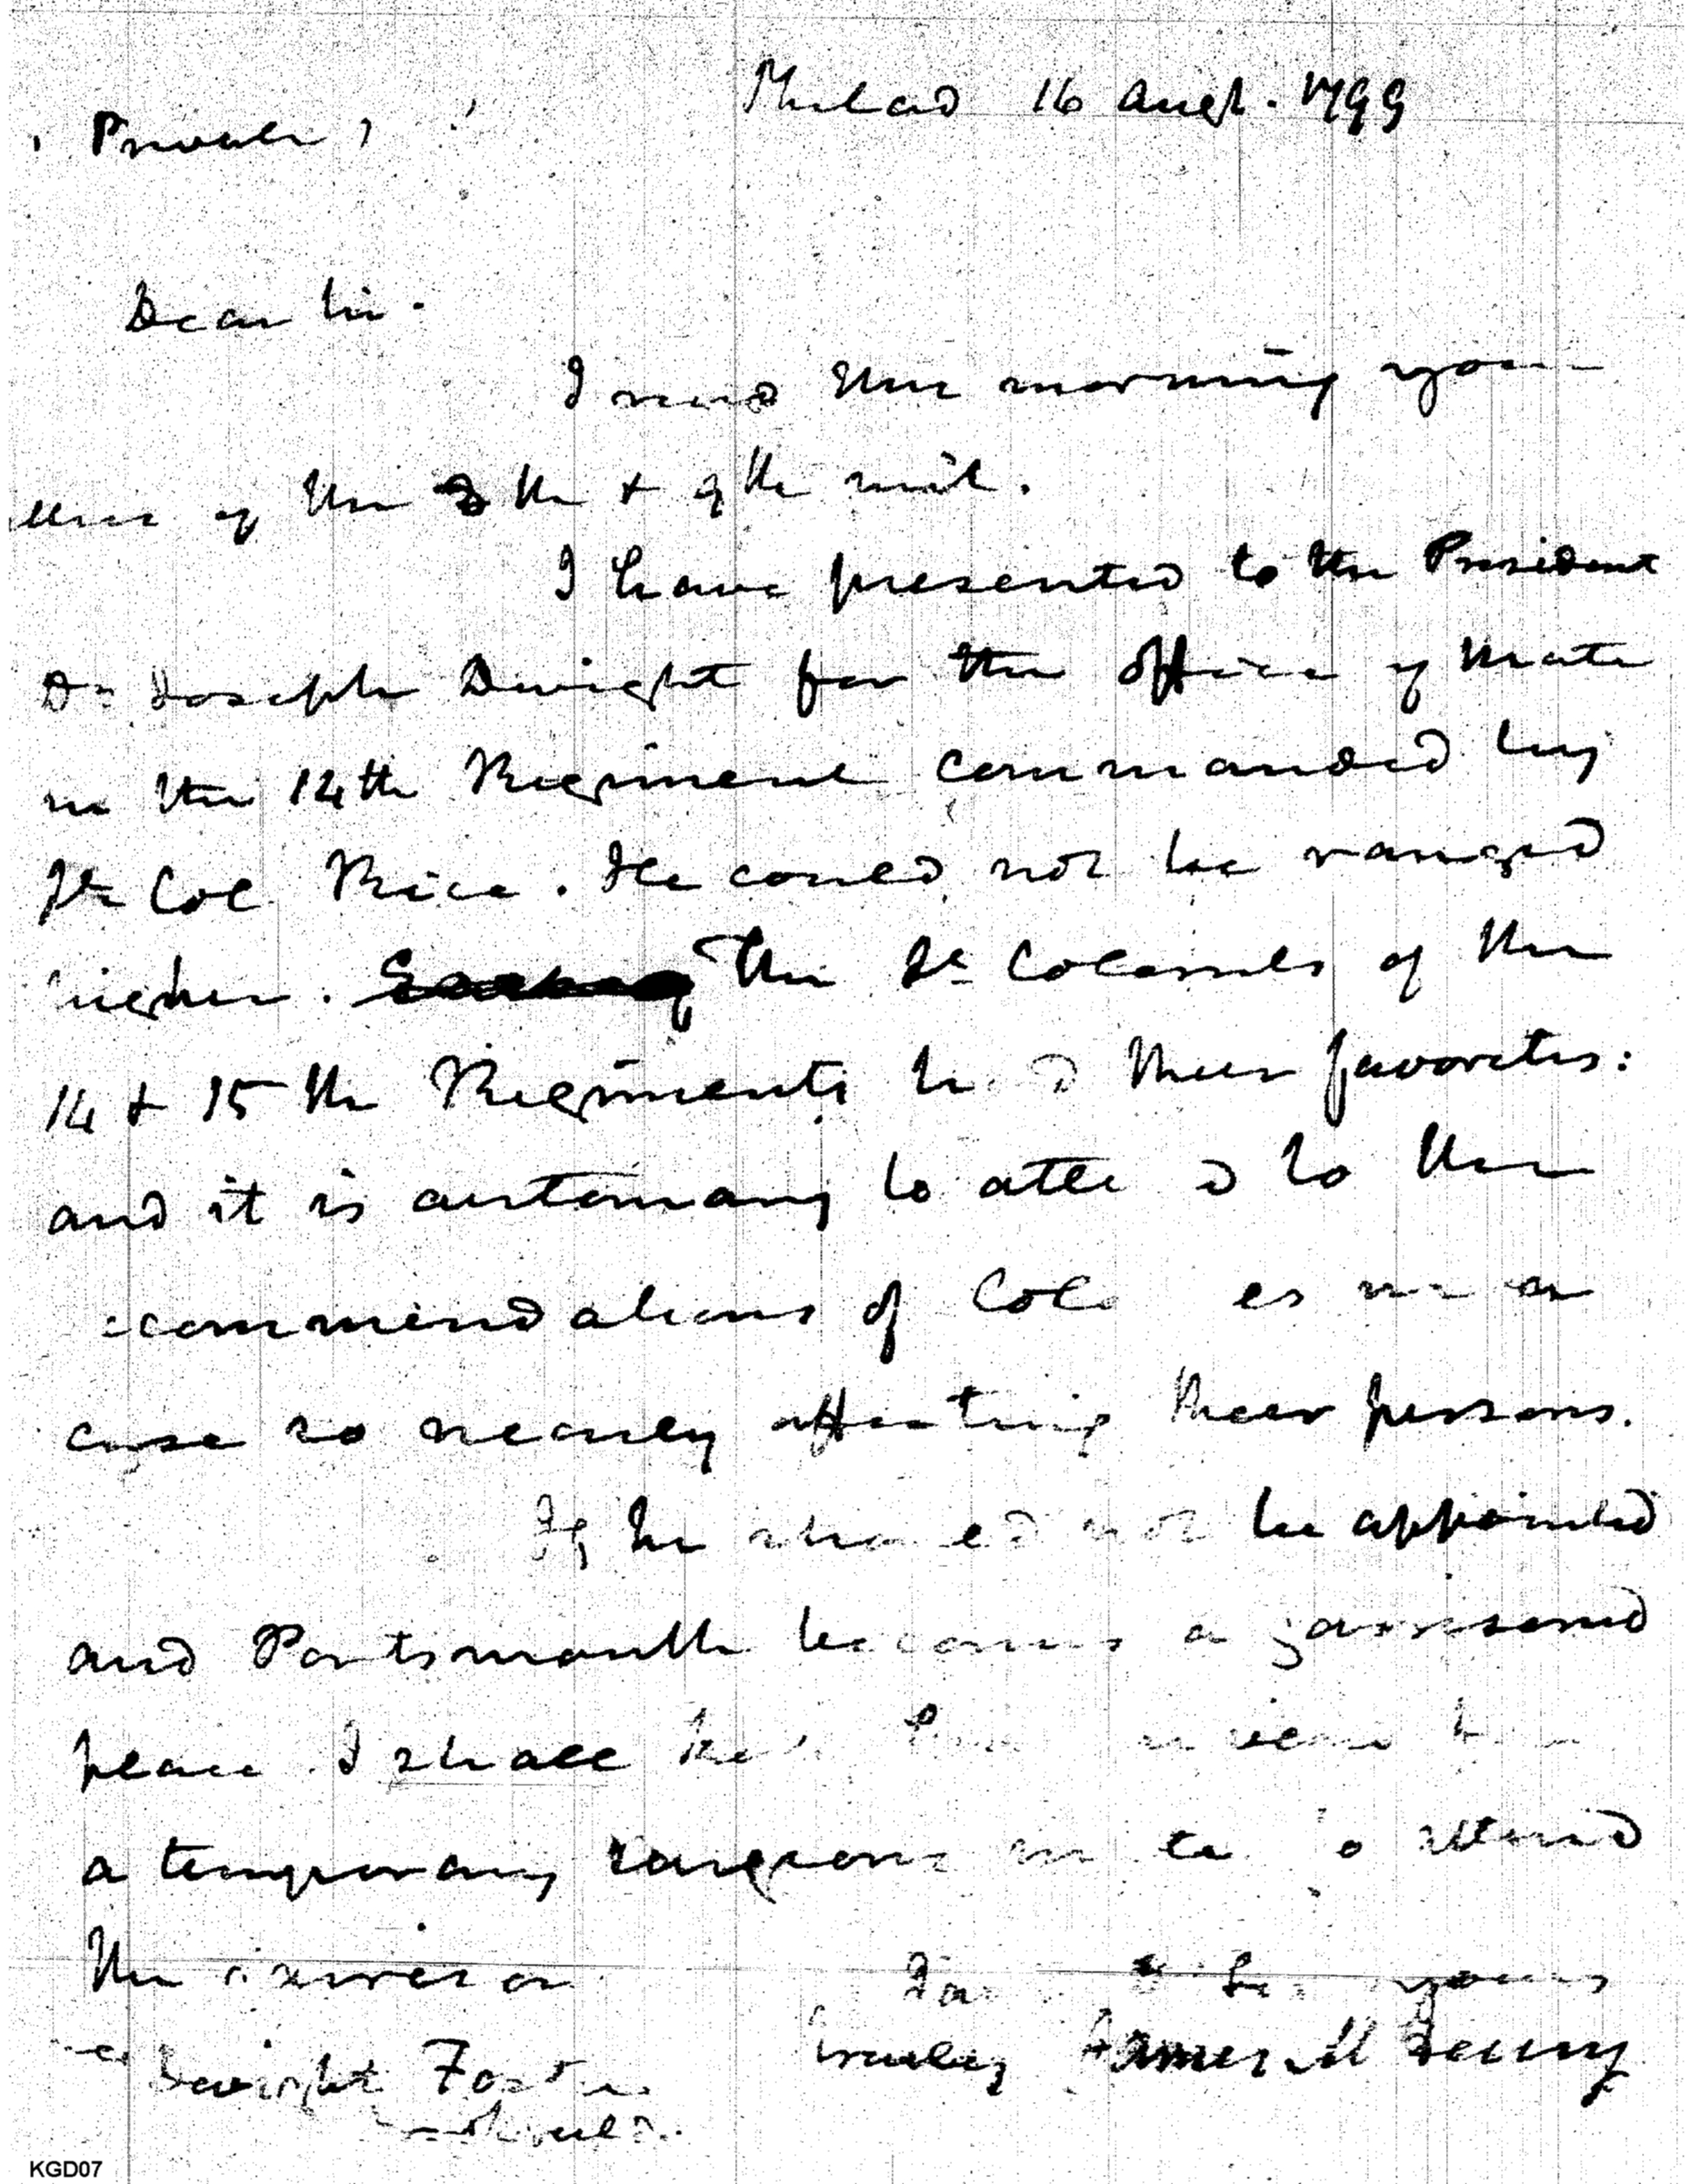 Philad 16 Augt. 1799
(Private)
Dear Sir.
I recd this morning your
of the 8th & 9th inst.
I have presented to the President
Dr Joseph Dwight for the office of Mate
in the 14th Regiment commanded by
Lt Col Rice. He could not be ranged
higher. The Lt Colonels of the
14 & 15th Regiments had their favorites:
and it is customary to attend to the
recommendations of Colonels in a
case so nearly affecting their persons.
If he should not be appointed
and Portsmouth becomes a garrisoned
place I shall keep him in view
a temporary surgeons mate to attend
the
Dear Sir yours
James McHenry
Dwight Foster
KGD07